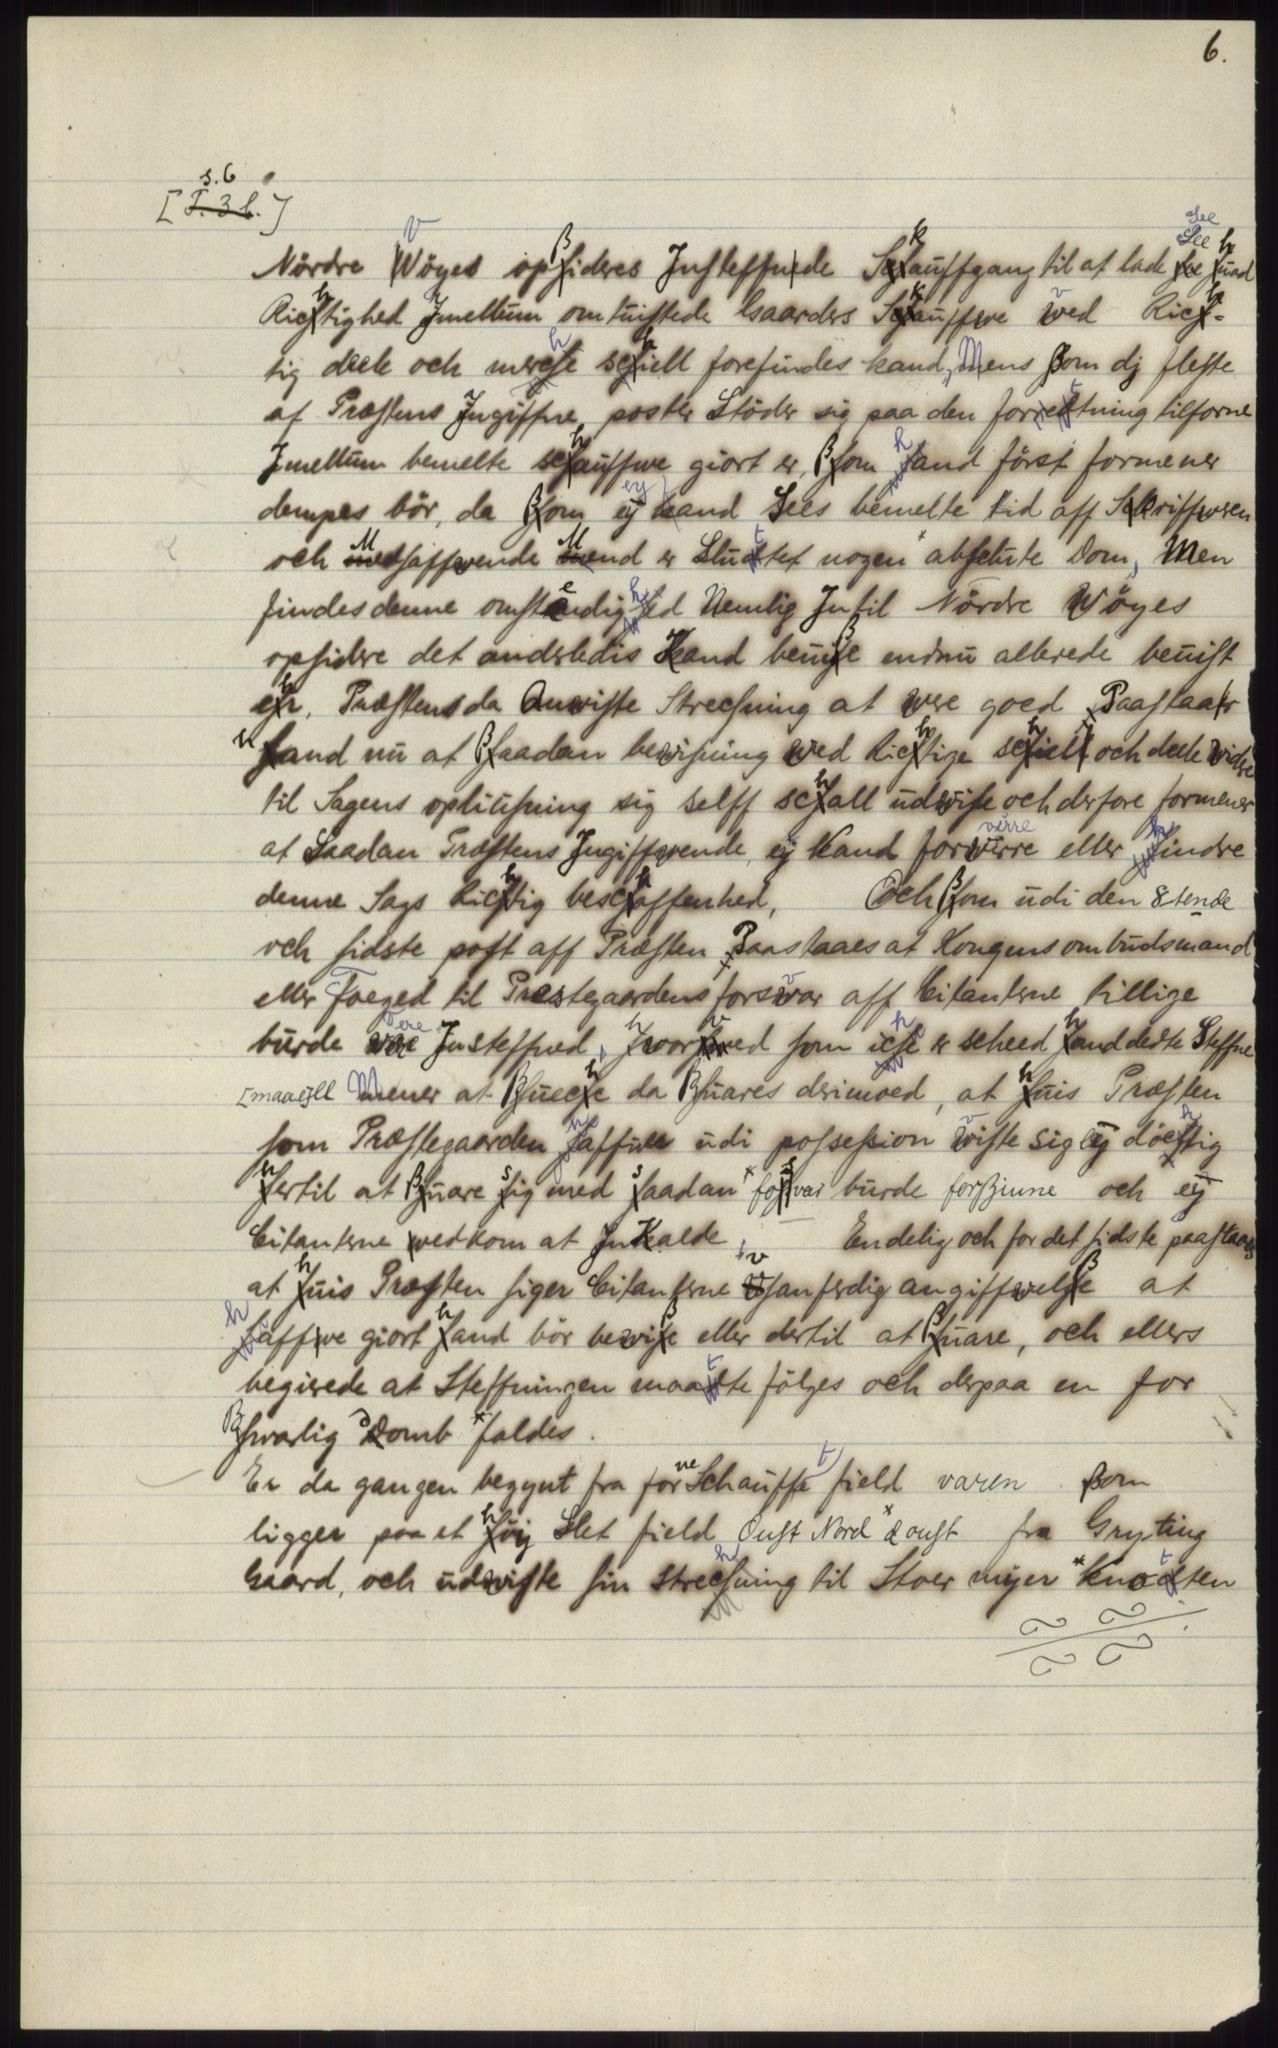 6.
s.6
[T. 3 b.]
Nördre Vöyes opßideres Jnsteffnede Skauffgang til at lade See huad
Richtighed Jmellum omtuistede Gaarders Skauffwe ved Rich-
tig deele och merche schiell forefindes kand, Mens ßom dj fleste
af Præstens Jngiffne poster Stöder sig paa den forretning tilforne
Jmellum bemelte schauffwe giort er, ßom hand först formener
dempes bör, da ßom ey kand Sees bemelte tid aff Skriffweren
och Medhaffwende Mend er Sluttet nogen absolute Dom, Men
findes denne omstendighed Nemlig Jntil Nördre Wöyes
opsidere det anderledis Kand beuiße endnu allerede beuist
ehr, Præstens da Anwiste Strechning at were goed Paastaar
hand nu at ßaadan bewisning wed Richtige schiell och deele widere
til Sagens opliusning sig selff schall udwise och derfore formener
at Saadan Præstens Jngiffwende ey Kand forvirre eller hindre
denne Sags Richtig beschaffenhed, Och ßom udi den 8tende
och sidste post aff Præsten Paastaaes at Kongens ombudsmand
eller Foeged til Præstegaardens forsvar aff Citanterne tillige
burde Vere Jnsteffned, hvorved som iche er scheed hand dette Steffne
[maaell] Mener at ßueche da ßuares derimoed, at huis Præsten
som Præstegaarden haffuer udi possession viste sig ey döchtig
hertil at ßuare sig med saadan forsvar burde forßiune och ey
Citanterne wedkom at Jnkalde, Endelig och for det sidste paastaaes
at huis Præsten siger Citanterne Vsanferdig angiffwelße at
haffwe giort hand bör bewiße eller dertil at ßuare, och ellers
begierede at Steffningen maatte fölges och derpaa en for
ßwarlig Domb faldes.
Er da gangen begynt fra forne Schauffet field varen ßom
ligger paa et höy Slet field Oust Nord oust fra Gryting
Gaard, och udwiste sin strechning til Stoer myer Knotten